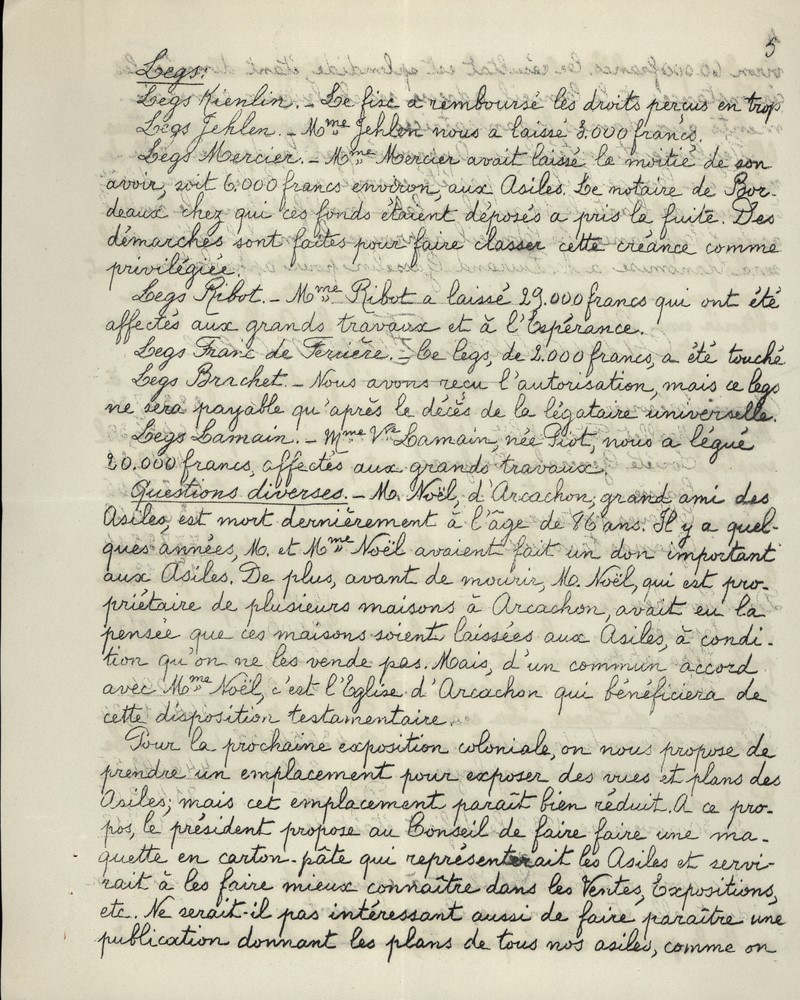 5
Legs:
Legs Kienlin. - Le fisc a remboursé les droits perçus en trop
Legs Jehlen. - Mme Jehlen nous a laissé 3.000 francs.
Legs Mercier. - Mme Mercier avait laissé la moitié de son
avoir, soit 6.000 francs environ, aux Asiles. Le notaire de Bor-
deaux chez qui ces fonds étaient déposés a pris la fuite. Des
démarches sont faites pour faire classer cette créance comme
privilégiée.
Legs Ribot. - Mme Ribot a laissé 29.000 francs qui ont été
affectés aux grands travaux et à l'Espérance.
Legs Franc de Ferrière. - Ce legs, de 2.000 francs, a été touché
Legs Brachet. - Nous avons reçu l'autorisation, mais ce legs
ne sera payable qu'après le décès de la légataire universelle.
Legs Lamain. - Mme Vve Lamain, née Piot, nous a légué
20.000 francs, affectés aux grands travaux.
Questions diverses. - M. Noël, d'Arcachon, grand ami des
Asiles, est mort dernièrement à l'âge de 86 ans. Il y a quel-
ques années, M. et Mme Noël avaient fait un don important
aux Asiles. De plus, avant de mourir, M. Noël, qui est pro-
priétaire de plusieurs maisons à Arcachon, avait eu la
pensée que ces maisons soient laissées aux Asiles, à condi-
tion qu'on ne les vende pas. Mais, d'un commun accord
avec Mme Noël, c'est l'Eglise d'Arcachon qui bénéficiera de
cette disposition testamentaire.
Pour la prochaine exposition coloniale, on nous propose de
prendre un emplacement pour exposer des vues et plans des
Asiles; mais cet emplacement paraît bien réduit. A ce pro-
pos, le président propose au Conseil de faire faire une ma-
quette en carton-pâte qui représenterait les Asiles et servi-
rait à les faire mieux connaître dans les Ventes, Expositions,
etc. Ne serait-il pas intéressant aussi de faire paraître une
publication donnant les plans de tous nos asiles, comme on